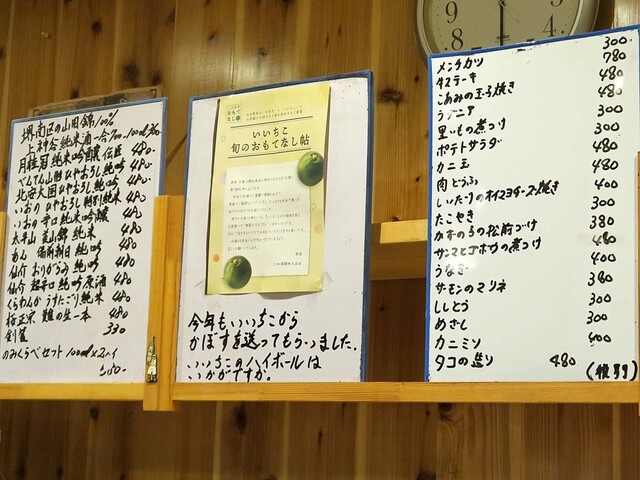 堺・南区の山田錦100%
上神谷純米酒
月桂冠 純米吟醸 伝匠 480.
べんてん山酔ひやおろし純吟 480.
北安大国ひやおろし純吟 480.
いおの ひやおろし特別純米 480
いおの 辛口 純米吟醸 480
太平山 美山錦 純米 480
純吟 480
仙介 おりがらみ 純吟 480
仙介 超辛口 純吟原酒 480
くらわんか うすにごり純米 480
桜正宗 灘の生一本 480
剣菱 330
のみくらべセット 100ml×2ハイ
いいちこ
旬のおもてなし帖
今年もいいちこから
かぼすを送ってもらいました。
いいちこのハイボールは
いかがですか。
メンチカツ 300.
780
ごあみの玉子焼き 480
ラザニア 480
里いもの煮つけ 300
ポテトサラダ 300
カニ玉 480
肉どうふ 480
しいたけのオイマヨチーズ焼き 400
たこやき 300
かずのこの松前づけ 380
サンマとゴボウの煮つけ 480
うなぎ 400
サーモンのマリネ 380
ししとう 300
めざし 300
カニミソ 400
タコの造り 480
(税別)
9
8
7
6
5
4